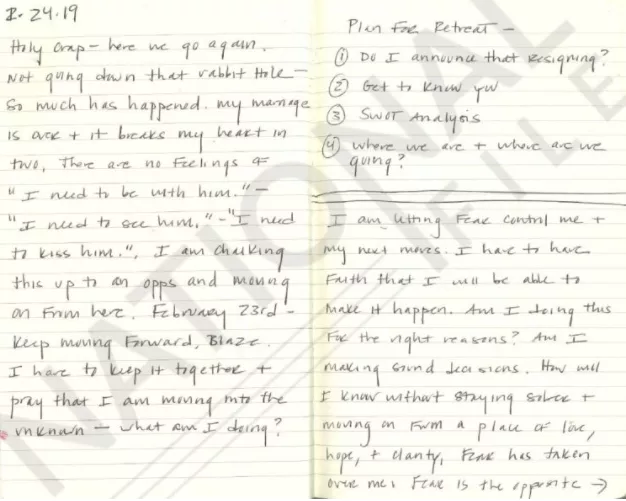 2.24.19
Holy crap - here we go again.
Not going down that rabbit Hole -
So much has happened. my marriage
is over + it breaks my heart in
two, There are no Feelings of
"I need to be with him." -
"I need to see him," - "I need
to kiss him.", I am chalking
this up to an opps and moving
on From here. February 23rd -
Keep moving Forward, Blaze.
I have to keep it together +
pray that I am moving into the
unknown - what am I doing?
Plan For Retreat -
① Do I announce that resigning?
② Get to know you
③ SWOT Analysis
④ where we are + where are we
going?
I am letting Fear control me +
my next moves. I have to have
Faith that I will be able to
make it happen. Am I doing this
For the right reasons? Am I
making sound decisions. How will
I know without staying sober +
moving on From a place of love,
hope, + clarity, Fear has taken
over me. Fear is the opposite →
NATIONAL
FILE